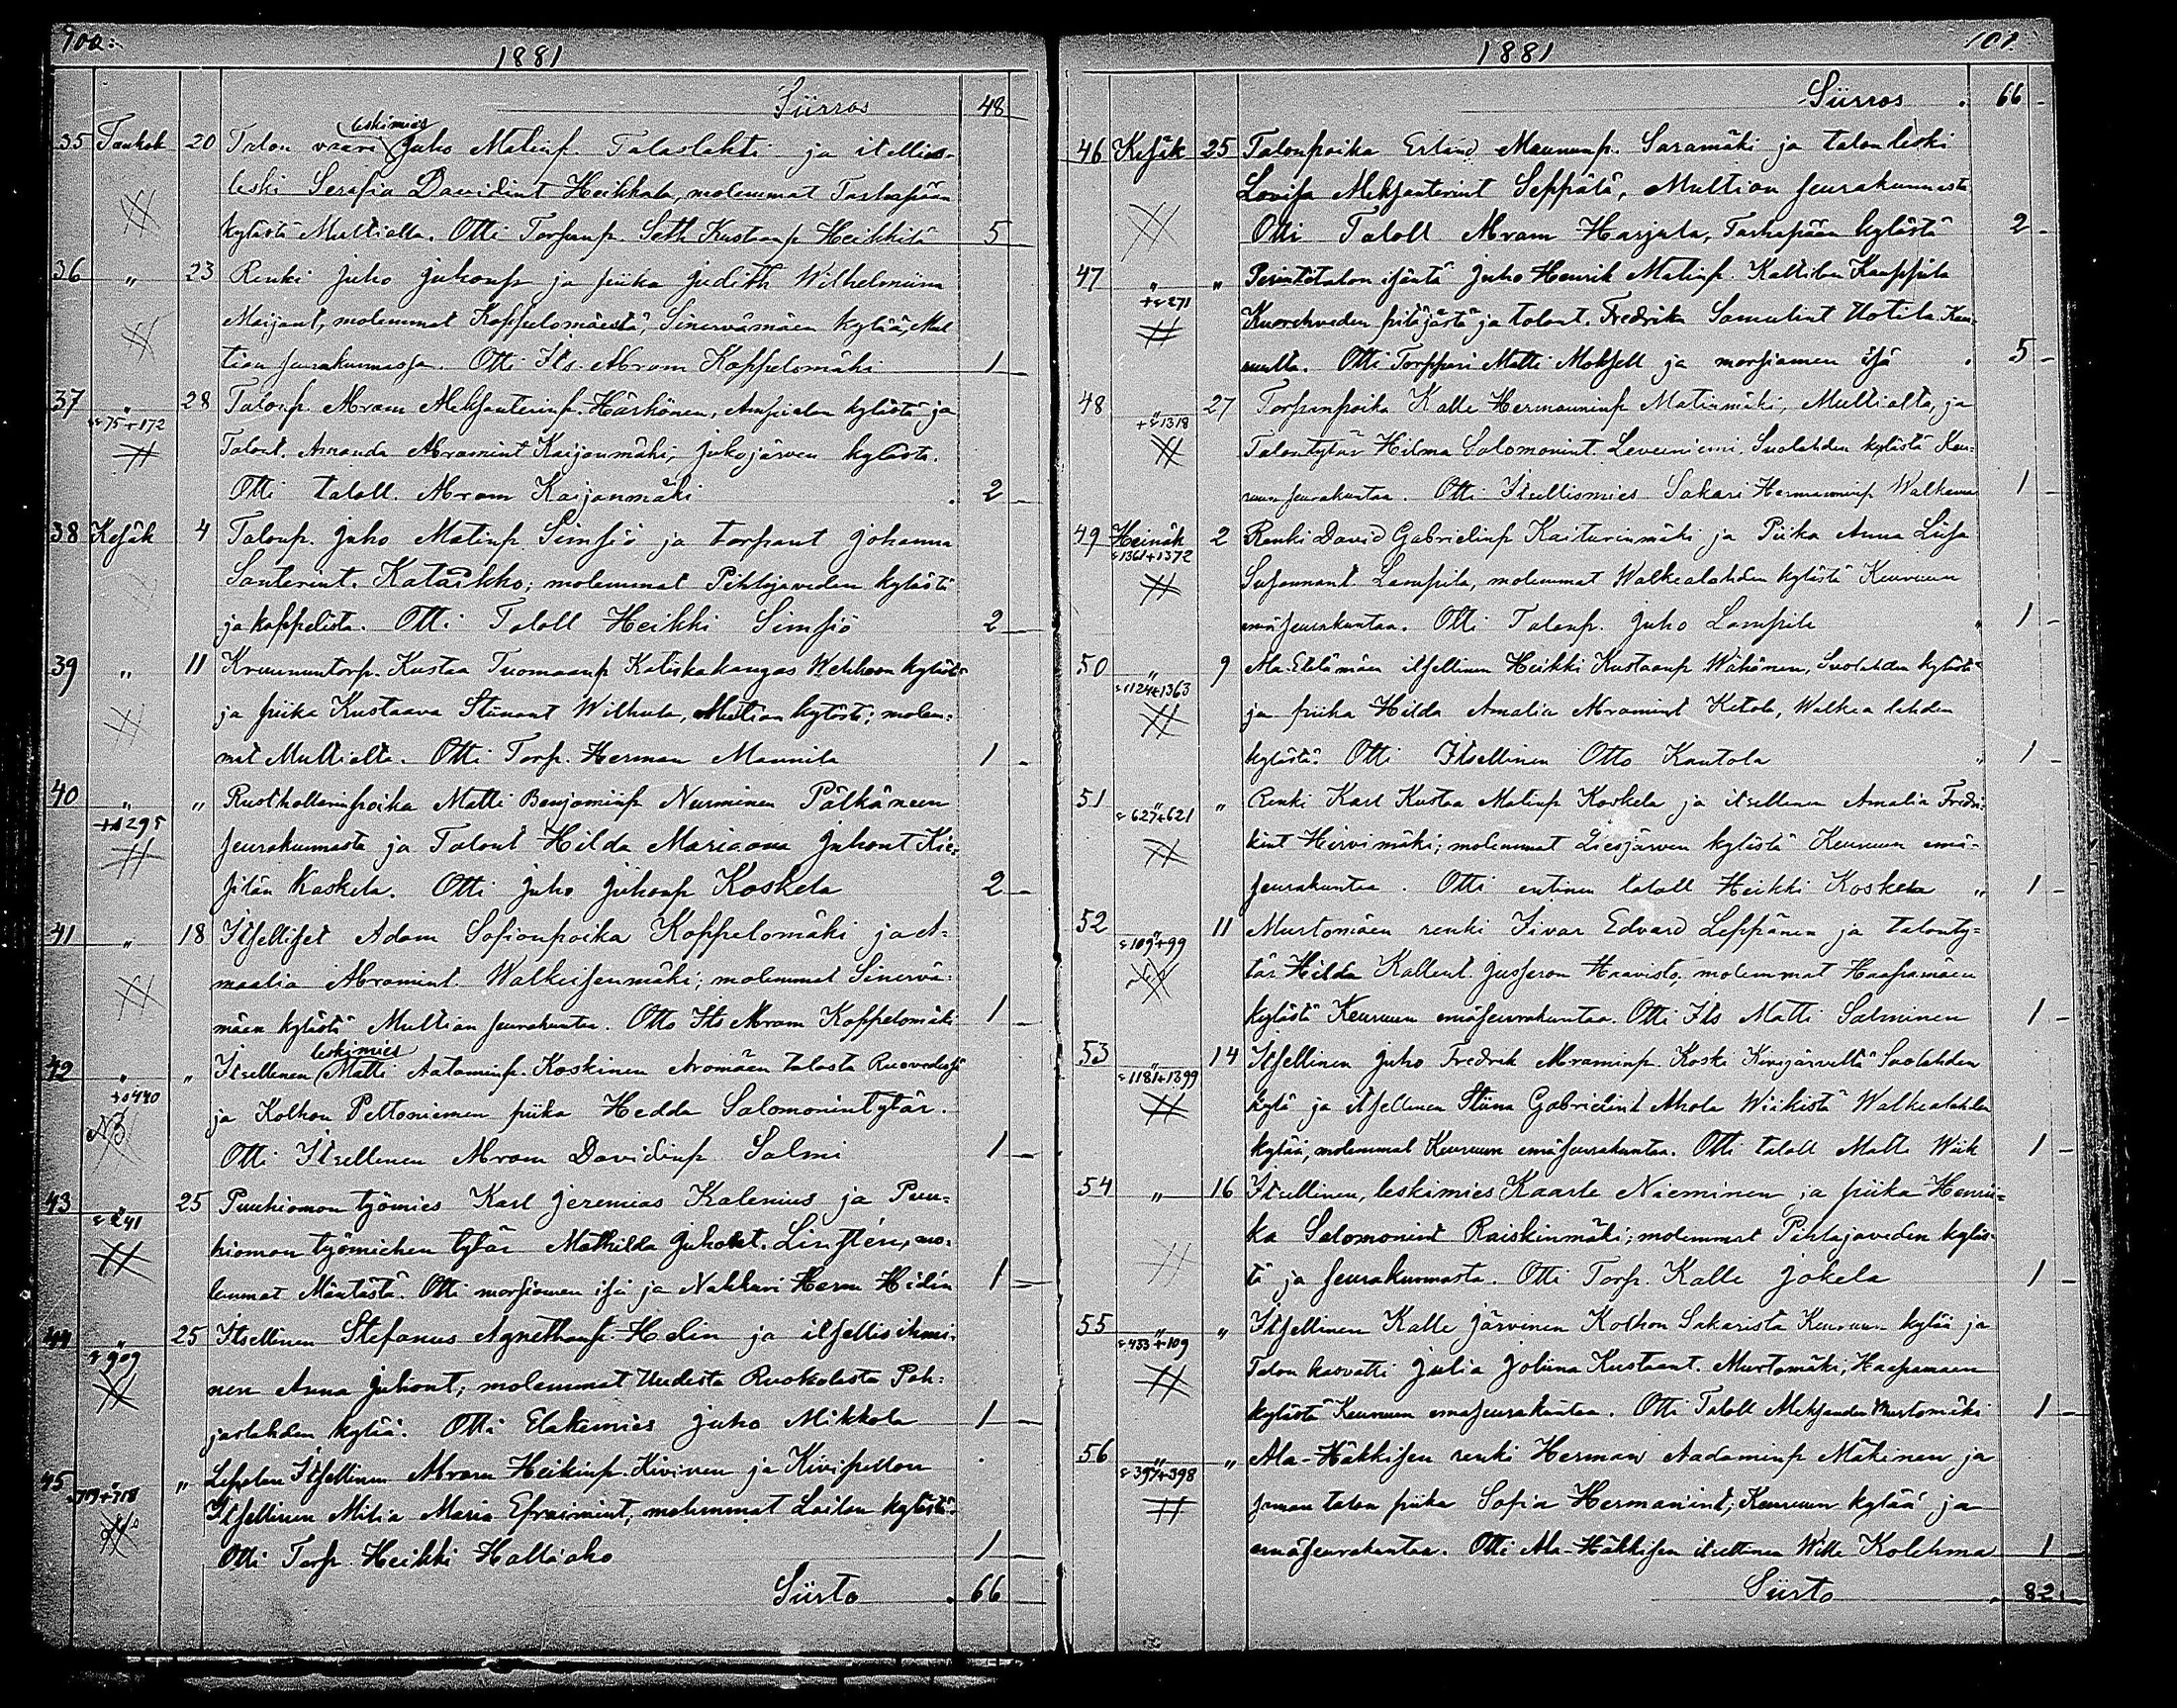 100.
1881
Siirros 48
leskimies
35 Toukok 20 Talon vaari Juho Matinp. Talaslahti ja itellis-
leski Serafia Davidint Heikkala, molemmat Tarhapään
kylästä Multialla. Otti Torpanp. Seth Kustaanp Heikkilä 5
36 " 23 Renki Juho Juhonp ja piika Judith Wilhelmiina
Maijant, molemmat Koppelomäestä, Sinervämäen kylää, Mul
tian seurakunnassa. Otti Its. Abram Koppelomäki 1
37 " 28 Talonp. Abram Aleksanterinp. Härkönen, Ampialan kylästä ja
s 75 + 172
Talont. Amanda Abramint Kaijanmäki, Jukojärven kylästä.
Otti taloll. Abram Kaijanmäki 2
38 Kesäk 4 Talonp. Juho Matinp Simsiö ja torpant Johanna
Santerint. Kataikko; molemmat Pihlajaveden kylästä
ja kappelista. Otti Taloll Heikki Simsiö 2
39 " 11 Kruununtorp. Kustaa Tuomaanp Katiskakangas Wehkoon kyläst
ja piika Kustaava Stiinant Wilhula, Multian kylästä; molem-
mat Multialta. Otti Torp. Herman Maunila 1
40 " " Rusthollarinpoika Matti Benjaminp Nurminen Pälkäneen
+ s 295
seurakunnasta ja Talont Hilda Mariaana Juhont Kie-
silän Koskela. Otti Juho Juhonp Koskela 2
41 " 18 Itselliset Adam Sofianpoika Koppelomäki ja A-
maalia Abramint. Walkeisenmäki; molemmat Sinervä-
mäen kylästä Multian seurakuntaa. Otto Its Abram Koppelomäki 1
leskimies
42 " " Itsellinen Matti Aataminp. Koskinen Aromäen talosta Ruovedeltä
+ s 440
ja Kolhon Peltoniemen piika Hedda Salomonintytär.
Otti Itsellinen Abram Davidinp Salmi 1
43 " 25 Puuhiomon työmies Karl Jeremias Kalenius ja Puu-
s 241
hiomon työmiehen tytär Mathilda Juhont. Linstén, mo-
lemmat Mäntästä. Otti morsiamen isä ja Nahkuri Herm Hidén 1
44 " 25 Itsellinen Stefanus Agnethanp. Helin ja itsellisihmi-
s 909
nen Anna Juhont; molemmat Uudesta Ruokolasta Poh-
jaslahden kylää. Otti Eläkemies Juho Mikkola 1
45 " " Lepolan Itsellinen Abram Heikinp. Kivinen ja Kivipellon
719 + 718
Itsellinen Milia Maria Efraimint, molemmat Loilan kylästä.
Otti Torp. Heikki Halliaho 1
Siirto 66
101
1881
Siirros 66
46 Kesäk 25 Talonpoika Erland Maununp. Saramäki ja talonleski
Lovisa Aleksanterint Seppälä, Multian seurakunnasta
Otti Taloll Abram Harjula, Tarhapään kylästä 2
47 " " Perintötalon isäntä Juho Henrik Matinp. Kallilan Kaappila
+ s 271
Kuorehveden pitäjästä ja talont. Fredrika Samulint Uotila Keu-
ruulta. Otti Torppari Matti Moksell ja morsiamen isä 5
48 " 27 Torpanpoika Kalle Hermanninp Matinmäki, Multialta, ja
+ s 1318
Talontytär Hilma Salomonint. Leveeniemi, Suolahden kylästä Keu-
ruun seurakuntaa. Otti Itsellismies Sakari Hermanninp Walkama 1
49 Heinäk 2 Renki David Gabrielinp Kaiturinmäki ja Piika Anna Liisa
s 1361 + 1372
Susannant Lampila, molemmat Walkealahden kylästä Keuruun
emäseurakuntaa. Otti Talonp. Juho Lampila 1
50 " 9 Ala-Etelämäen itsellinen Heikki Kustaanp Wähönen, Suolahden kylästä
s 1124 + 1363
ja piika Hilda Amalia Abramint Ketola, Walkea lahden
kylästä. Otti Itsellinen Otto Kantola 1
51 " " Renki Karl Kustaa Matinp Koskela ja itsellinen Amalia Fredri-
s 627 + 621
kint Hirvimäki; molemmat Liesjärven kylästä Keuruun emä-
seurakuntaa. Otti entinen taloll Heikki Koskela 1
52 " 11 Murtomäen renki Iivar Edvard Leppänen ja talonty-
s 109 + 99
tär Hilda Kallent. Jusseron Haavisto, molemmat Haapamäen
kylästä Keuruun emäseurakuntaa. Otti Its Matti Salminen 1
53 " 14 Itsellinen Juho Fredrik Abraminp. Koski Kivijärveltä Suolahden
s 1181 + 1399
kylä ja itsellinen Stiina Gabrielint Ahola Wiikistä Walkealahden
kylää, molemmat Keuruun emäseurakuntaa. Otti taloll Matti Wiik 1
54 " 16 Itsellinen, leskimies Kaarle Nieminen ja piika Henrii-
ka Salomonint Raiskinmäki; molemmat Pihlajaveden kyläs-
tä ja seurakunnasta. Otti Torp. Kalle Jokela 1
55 " " Itsellinen Kalle Järvinen Kolhon Sakarista Keuruun kylää ja
s 433 + 109
Talon kasvatti Julia Joliina Kustaant. Murtomäki, Haapamäen
kylästä Keuruun emäseurakuntaa. Otti Taloll Aleksander Murtomäki 1
56 " " Ala-Häkkisen renki Herman Aadaminp Mäkinen ja
s 397 + 398
saman talon piika Sofia Hermanint; Keuruun kylää ja
emäseurakuntaa. Otti Ala-Häkkisen itsellinen Wille Kolehma 1
Siirto 82